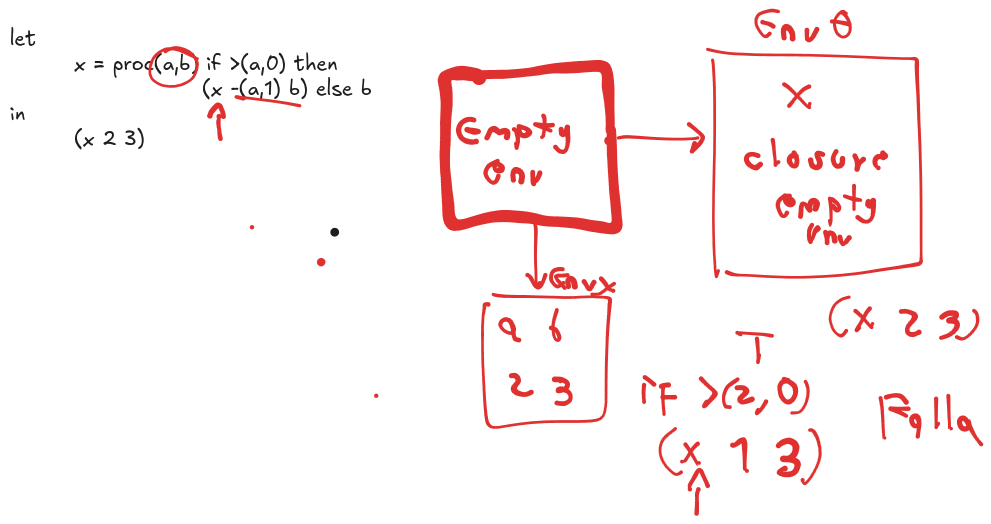 let
x = proc(a,b) if >(a,0) then
(x -(a,1) b) else b
in
(x 2 3)
Empty
env
Env 0
x
closure
empty
env
Env x
a b
2 3
(x 2 3)
T
if >(2,0)
(x 1 3)
Falla